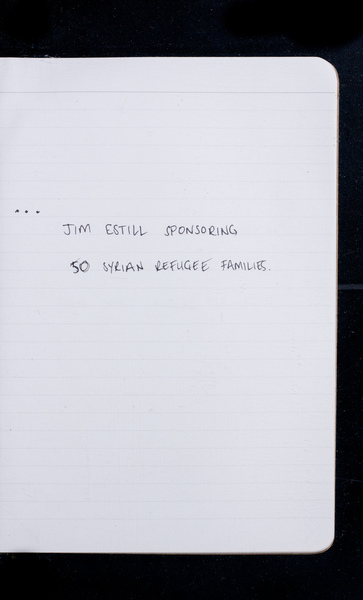 ...
JIM ESTILL SPONSORING
50 SYRIAN REFUGEE FAMILIES.